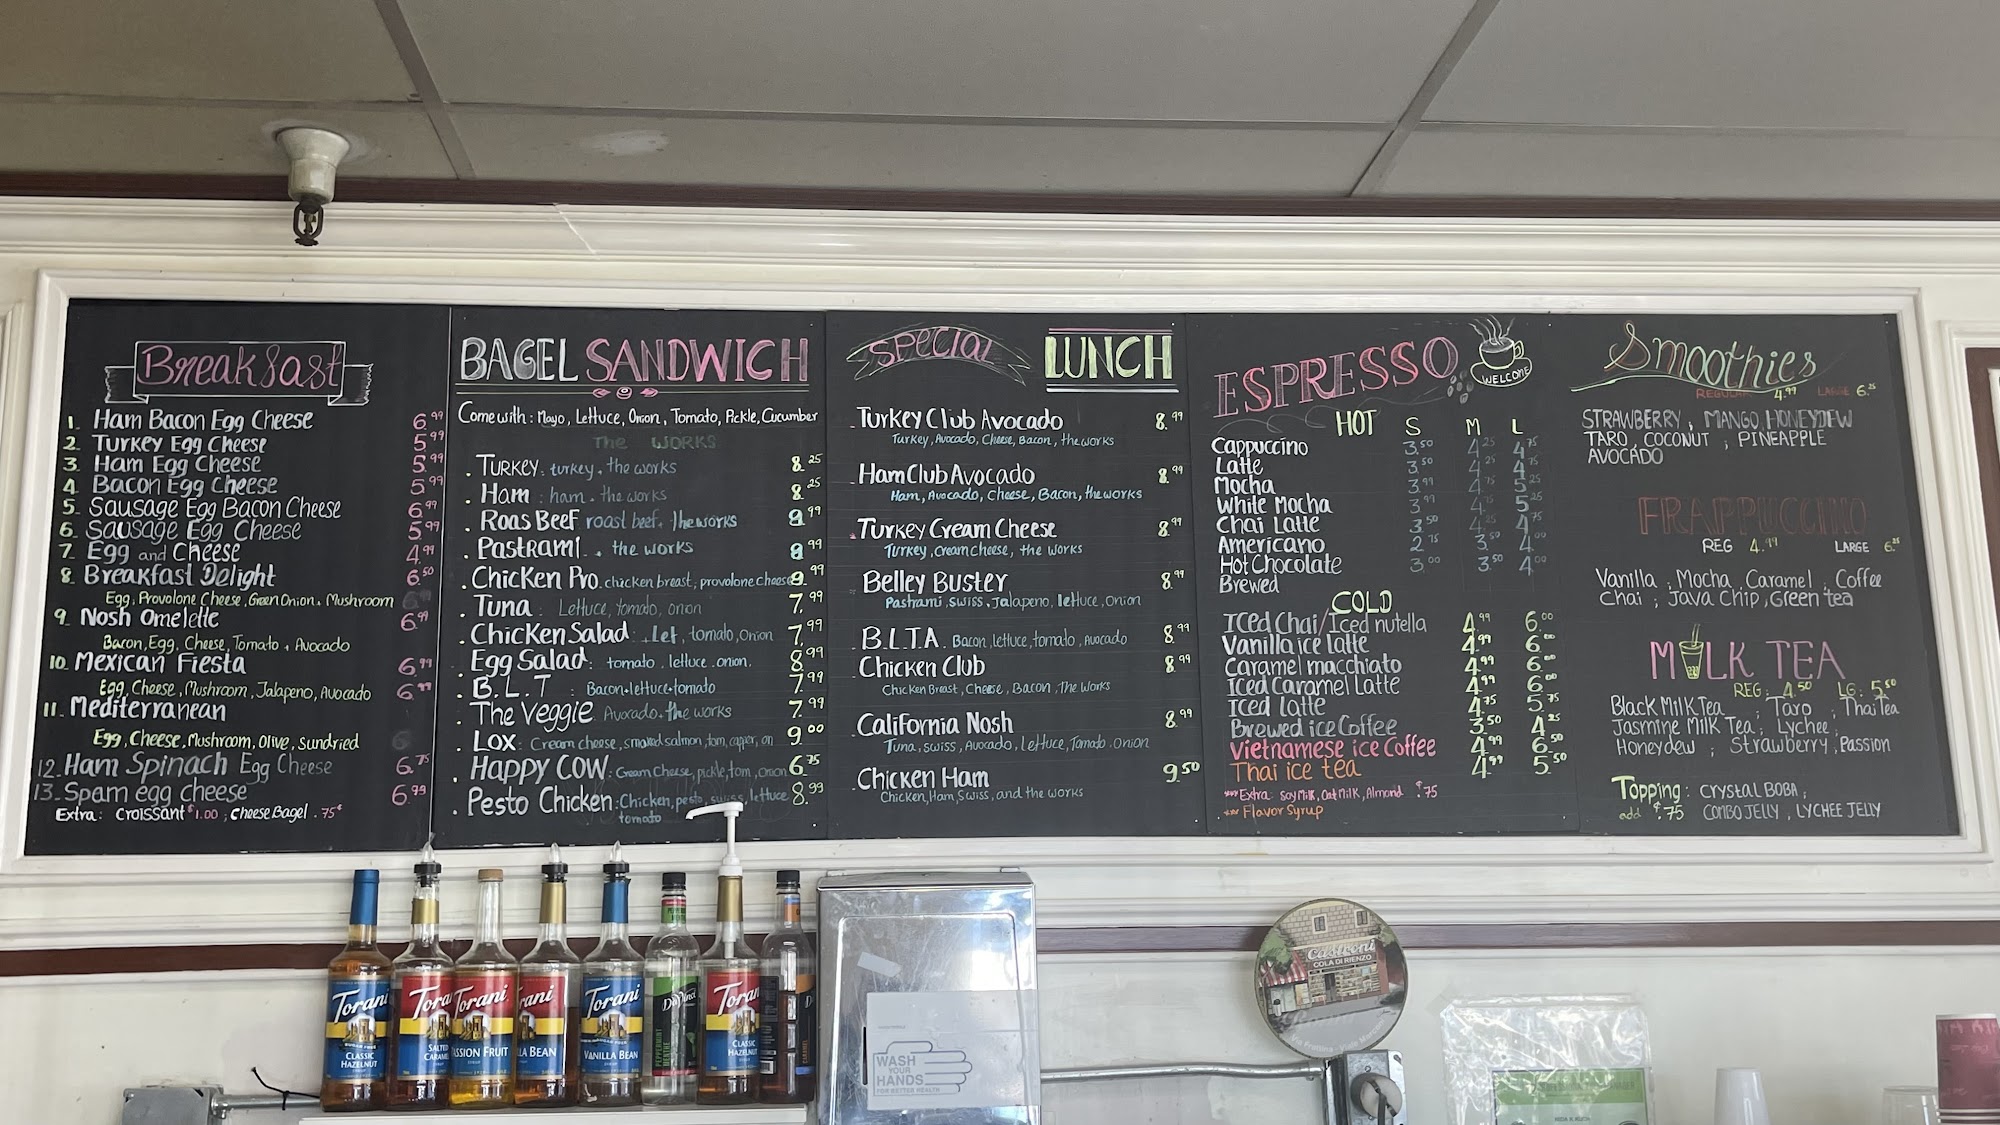 Breakfast
1. Ham Bacon Egg Cheese 6.99
2. Turkey Egg Cheese 5.99
3. Ham Egg Cheese 5.99
4. Bacon Egg Cheese 5.99
5. Sausage Egg Bacon Cheese 6.99
6. Sausage Egg Cheese 5.99
7. Egg and Cheese 4.99
8. Breakfast Delight 6.50
Egg, Provolone Cheese, Green Onion, Mushroom
9. Nosh Omelette 6.99
Bacon, Egg, Cheese, Tomato, Avocado
10. Mexican Fiesta 6.99
Egg, Cheese, Mushroom, Jalapeno, Avocado 6.99
11. Mediterranean
Egg, Cheese, Mushroom, Olive, Sundried
12. Ham Spinach Egg Cheese 6.75
13. Spam egg cheese 6.99
Extra: Croissant $1.00; Cheese Bagel .75¢
BAGEL SANDWICH
Come with: Mayo, Lettuce, Onion, Tomato, Pickle, Cucumber
The WORKS
. Turkey: turkey, the works 8.25
. Ham: ham, the works 8.25
. Roas Beef roast beef, the works .99
. Pastrami, the works .99
. Chicken Pro. chicken breast, provolone cheese 9.99
. Tuna: Lettuce, tomato, onion 7.99
. Chicken Salad: Let, tomato, onion 7.99
. Egg Salad: tomato, lettuce, onion, 8.99
. B.L.T: Bacon, lettuce, tomato 7.99
. The Veggie: Avocado, the works 7.99
. Lox: Cream cheese, smoked salmon, tom, caper, on 9.00
. Happy Cow: Cream Cheese, pickle, tom, onion 6.75
. Pesto Chicken: Chicken, pesto, swiss, lettuce 8.99
tomato
SPECIAL LUNCH
Turkey Club Avocado 8.99
Turkey, Avocado, Cheese, Bacon, the works
Ham Club Avocado 8.99
Ham, Avocado, Cheese, Bacon, the works
Turkey Cream Cheese 8.99
Turkey, Cream Cheese, the works
Belley Buster 8.99
Pastrami, Swiss, Jalapeno, lettuce, onion
B.L.T.A. Bacon, lettuce, tomato, Avocado 8.99
Chicken Club 8.99
Chicken Breast, Cheese, Bacon, The Works
California Nosh 8.99
Tuna, Swiss, Avocado, Lettuce, Tomato, Onion
Chicken Ham 9.50
Chicken, Ham, Swiss, and the works
ESPRESSO
WELCOME
HOT S M L
Cappuccino 3.50 4.25 4.75
Latte 3.50 4.25 4.75
Mocha 3.99 4.75 5.25
White Mocha 3.99 4.75 5.25
Chai Latte 3.50 4.25 4.75
Americano 2.75 3.50 4.00
Hot Chocolate 3.00 3.50 4.00
Brewed
COLD
Iced Chai/Iced nutella 4.99 6.00
Vanilla ice latte 4.99 6.00
Caramel macchiato 4.99 6.00
Iced Caramel Latte 4.99 6.00
Iced latte 4.75 5.75
Brewed ice Coffee 3.50 4.25
Vietnamese ice Coffee 4.99 6.50
Thai ice tea 4.99 5.50
***Extra: Soy Milk, Oat Milk, Almond $.75
*** Flavor Syrup
Smoothies
REGULAR 4.99 LARGE 6.25
STRAWBERRY, MANGO, HONEYDEW
TARO, COCONUT, PINEAPPLE
AVOCADO
FRAPPUCCINO
REG 4.99 LARGE 6.25
Vanilla, Mocha, Caramel, Coffee
Chai, Java Chip, Green tea
MILK TEA
REG: 4.50 LG: 5.50
Black Milk Tea; Taro; Thai Tea
Jasmine Milk Tea; Lychee;
Honeydew; Strawberry, Passion
Topping: Crystal BOBA;
add $.75 COMBO JELLY, LYCHEE JELLY
Torani
CLASSIC HAZELNUT
Torani
SALTED CARAMEL
Torani
PASSION FRUIT
Torani
VANILLA BEAN
Torani
VANILLA BEAN
DaVinci
PEPPERMINT
Torani
CLASSIC HAZELNUT
CARAMEL
WASH
YOUR
HANDS
FOR BETTER HEALTH
Castroni
COLA DI RIENZO